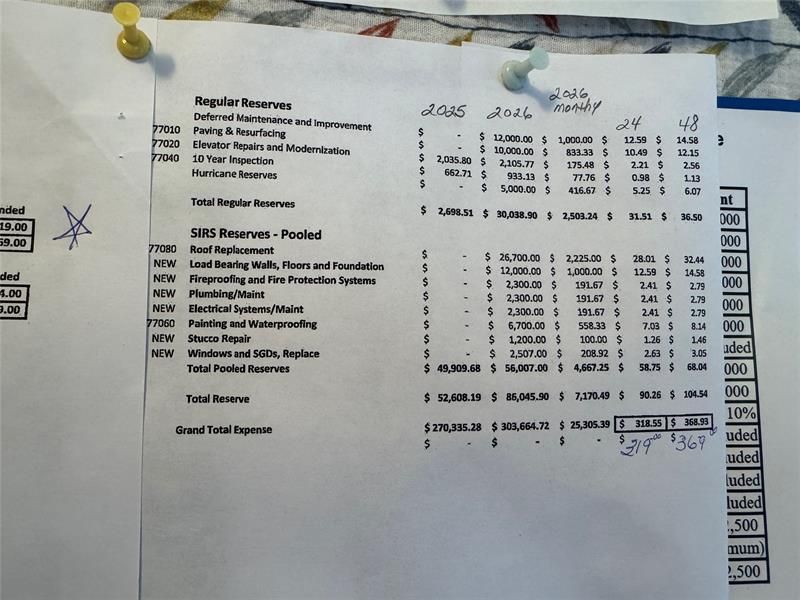 2025 2026 2026 monthly 24 48
Regular Reserves
Deferred Maintenance and Improvement $ - $ 12,000.00 $ 1,000.00 $ 12.59 $ 14.58
77010 Paving & Resurfacing $ - $ 10,000.00 $ 833.33 $ 10.49 $ 12.15
77020 Elevator Repairs and Modernization $ 2,035.80 $ 2,105.77 $ 175.48 $ 2.21 $ 2.56
77040 10 Year Inspection $ 662.71 $ 933.13 $ 77.76 $ 0.98 $ 1.13
Hurricane Reserves $ - $ 5,000.00 $ 416.67 $ 5.25 $ 6.07
Total Regular Reserves $ 2,698.51 $ 30,038.90 $ 2,503.24 $ 31.51 $ 36.50
SIRS Reserves - Pooled
77080 Roof Replacement $ - $ 26,700.00 $ 2,225.00 $ 28.01 $ 32.44
NEW Load Bearing Walls, Floors and Foundation $ - $ 12,000.00 $ 1,000.00 $ 12.59 $ 14.58
NEW Fireproofing and Fire Protection Systems $ - $ 2,300.00 $ 191.67 $ 2.41 $ 2.79
NEW Plumbing/Maint $ - $ 2,300.00 $ 191.67 $ 2.41 $ 2.79
NEW Electrical Systems/Maint $ - $ 2,300.00 $ 191.67 $ 2.41 $ 2.79
77060 Painting and Waterproofing $ - $ 6,700.00 $ 558.33 $ 7.03 $ 8.14
NEW Stucco Repair $ - $ 1,200.00 $ 100.00 $ 1.26 $ 1.46
NEW Windows and SGDs, Replace $ - $ 2,507.00 $ 208.92 $ 2.63 $ 3.05
Total Pooled Reserves $ 49,909.68 $ 56,007.00 $ 4,667.25 $ 58.75 $ 68.04
Total Reserve $ 52,608.19 $ 86,045.90 $ 7,170.49 $ 90.26 $ 104.54
Grand Total Expense $ 270,335.28 $ 303,664.72 $ 25,305.39 $ 318.55 $ 368.93
$ - $ - $ - $ 319.00 $ 369.00
nded
19.00
59.00
ded
4.00
9.00
e
nt
000
000
000
000
000
000
uded
000
000
10%
uded
uded
luded
luded
,500
mum)
2,500